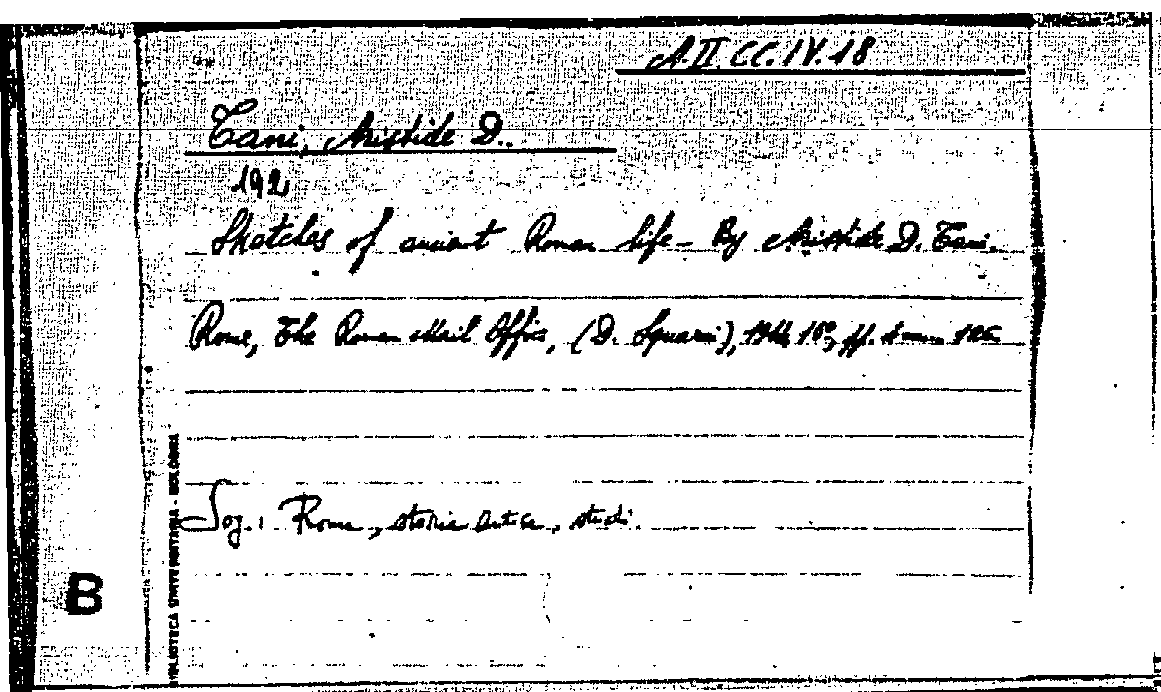 A.II.CC.IV.18
Tani, Aristide D..
192
Sketches of ancient Roman life - By Aristide D. Tani.
Rome, The Roman Mail Office, (D. Squarci), 16°, pp.
Sog.: Roma, storia antica, studi.
B
BIBLIOTECA UNIVERSITARIA - BOLOGNA